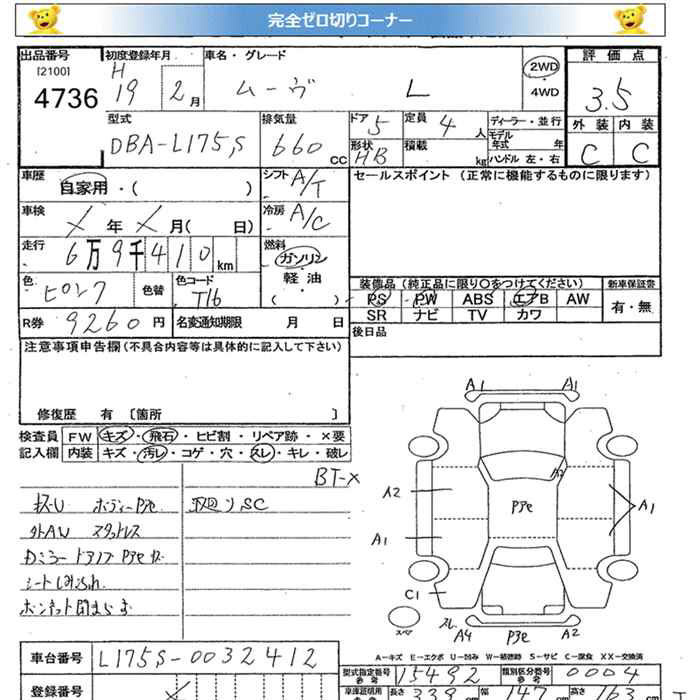 完全ゼロ切りコーナー
出品番号 初度登録年月 車名・グレード 評価点
[2100] H 2WD
4736 19 2月 ムーヴ L 4WD 3.5
型式 排気量 ドア 5 定員 4人 ディーラー・並行 外装 内装
DBA-L175S 660cc 形状 HB 積載 kg モデル年式 年 C C
ハンドル 左・右
車歴 自家用・( ) シフト A/T セールスポイント (正常に機能するものに限ります)
車検 / 年 / 月( 日) 冷房 A/C
走行 6万9千410km 燃料 ガソリン
軽油
( )
色 ピンク 色替 色コード T16 装備品 (純正品に限り○をつけてください) 新車保証書
PS PW ABS エアB AW 有・無
R券 9260円 名変通知期限 月 日 SR ナビ TV カワ
注意事項申告欄(不具合内容等は具体的に記入して下さい) 後日品
修復歴 有 〔箇所 〕
検査員 FW キズ・飛石・ヒビ割・リペア跡・×要
記入欄 内装 キズ・汚レ・コゲ・穴・スレ・キレ・破レ
BT-X
A1 A1
A2 A2 Pアセ A1
A1
C1
スペア スレ A4 Pアセ A2
キズU ボディーPアセ 下廻りSC
外AW スタッドレス
シートしみ
A-キズ E-エクボ U-凹み W-補修跡 S-サビ C-腐食 XX-交換済
車台番号 L175S-0032412 型式指定番号 参考 15492 類別区分番号 参考 0004
登録番号 長さ 339cm 幅 147cm 高さ 163cm